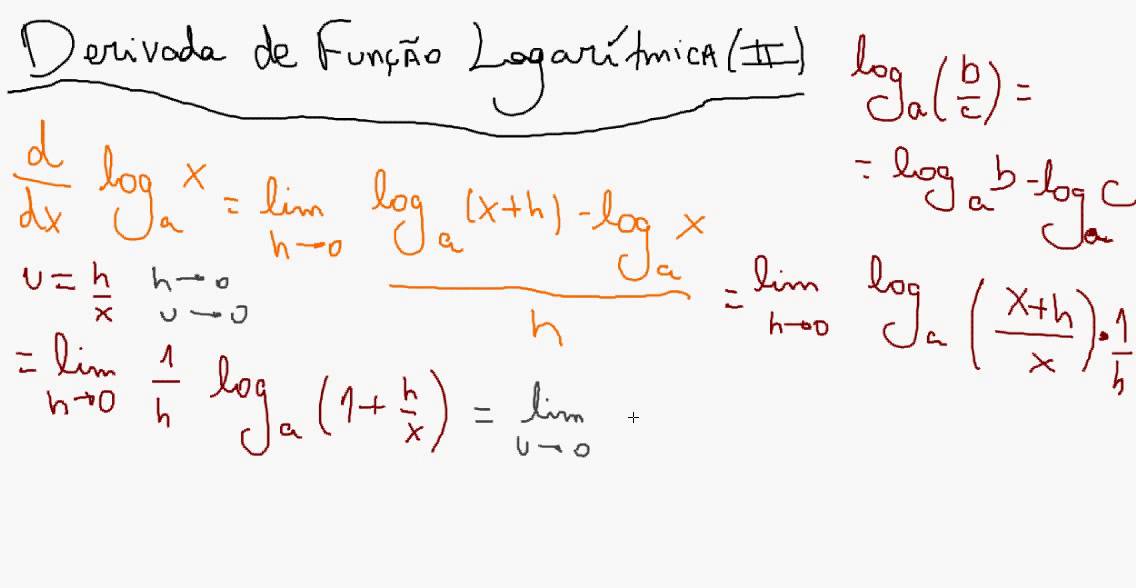 Derivada de Função Logarítmica (II)
log_a (b/c) =
= log_a b - log_a c
d/dx log_a x = lim h→0 (log_a (x+h) - log_a x)/h
= lim h→0 log_a ((x+h)/x) · 1/h
u = h/x h→0
u→0
= lim h→0 1/h log_a (1 + h/x) = lim u→0